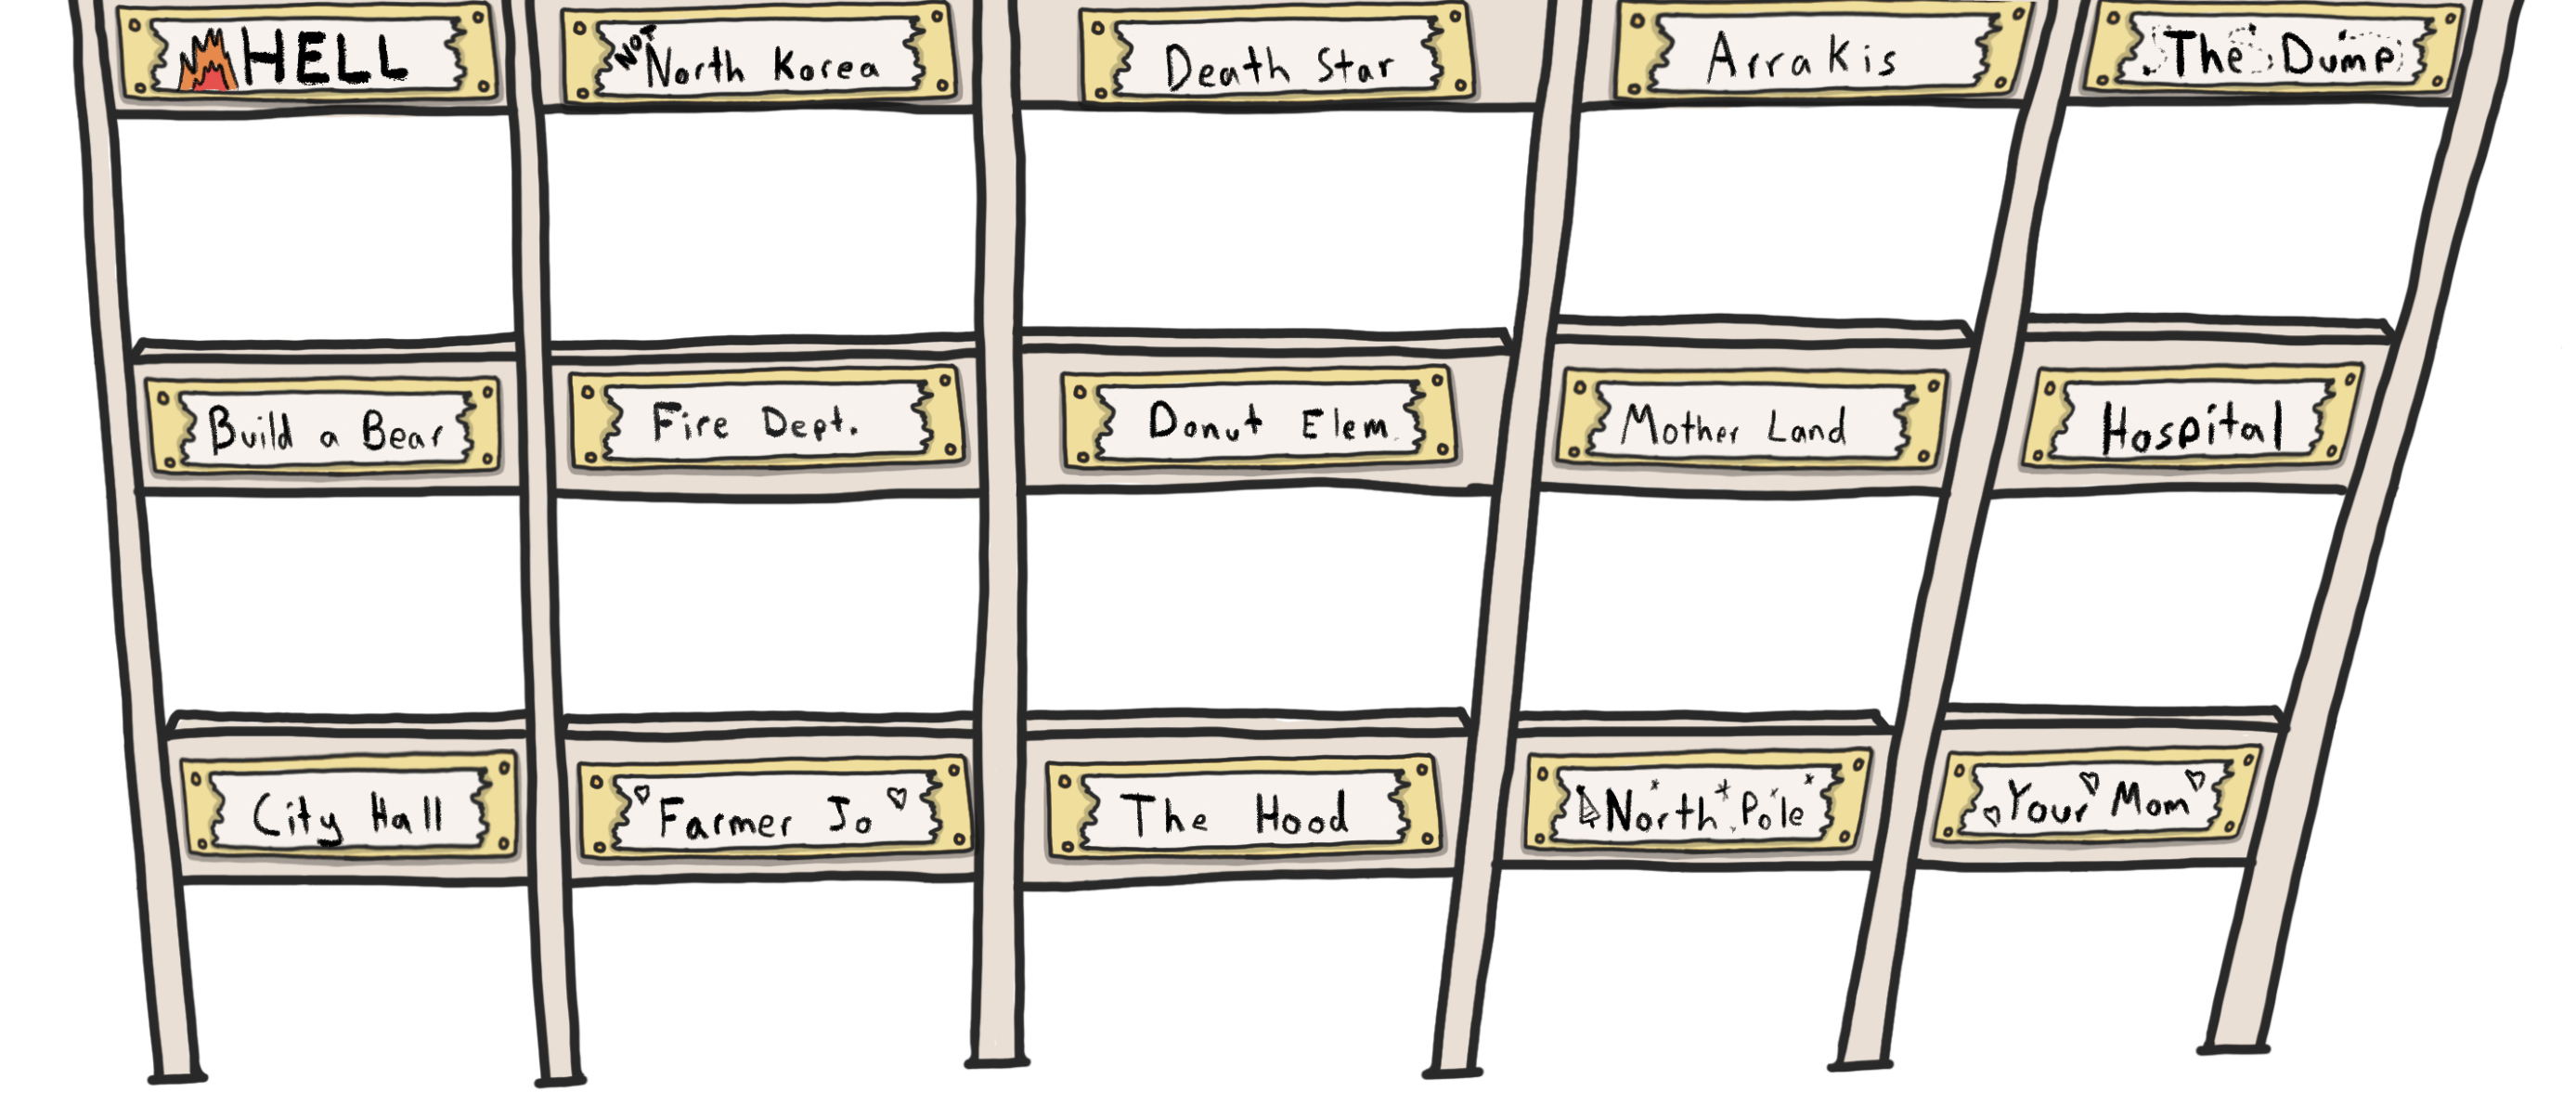 HELL
NOT North Korea
Death Star
Arrakis
The Dump
Build a Bear
Fire Dept.
Donut Elem.
Mother Land
Hospital
City Hall
Farmer Jo
The Hood
North Pole
Your Mom